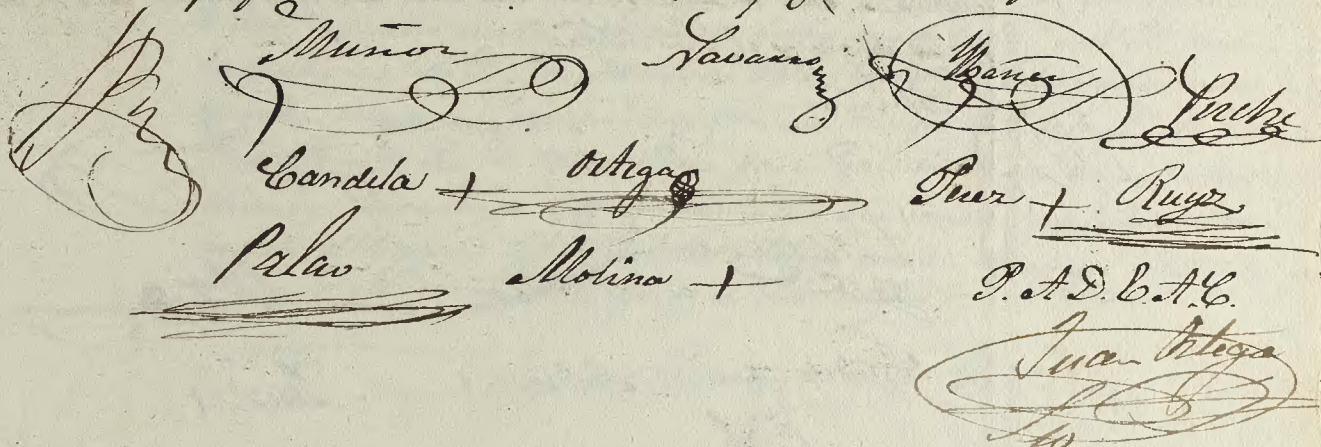 Muñoz Navarro Ybañez Puche
Candela + Ortega Perez + Ruyz
Palao Molina +
P. A D. E. A. C.
Juan Ortega
Sro